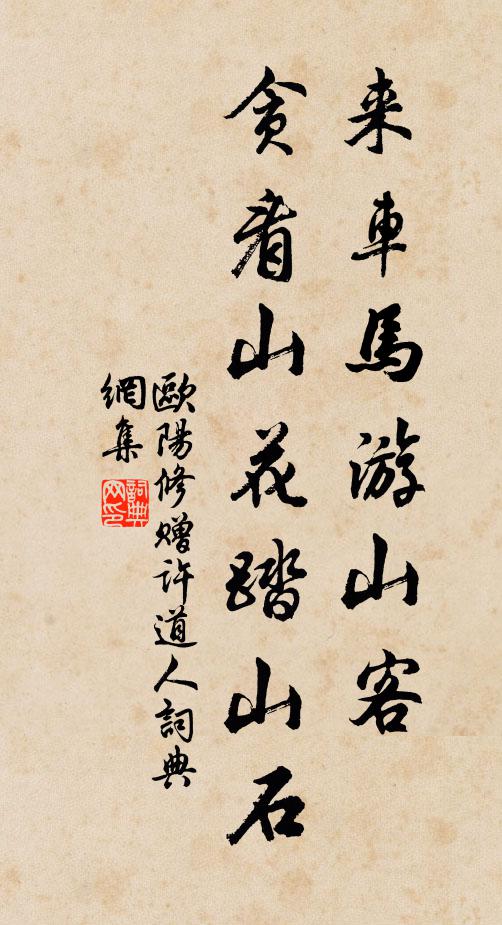 来車馬游山客
贪看山花踏山石
歐陽修赠许道人詞典
網集
詞典
网印